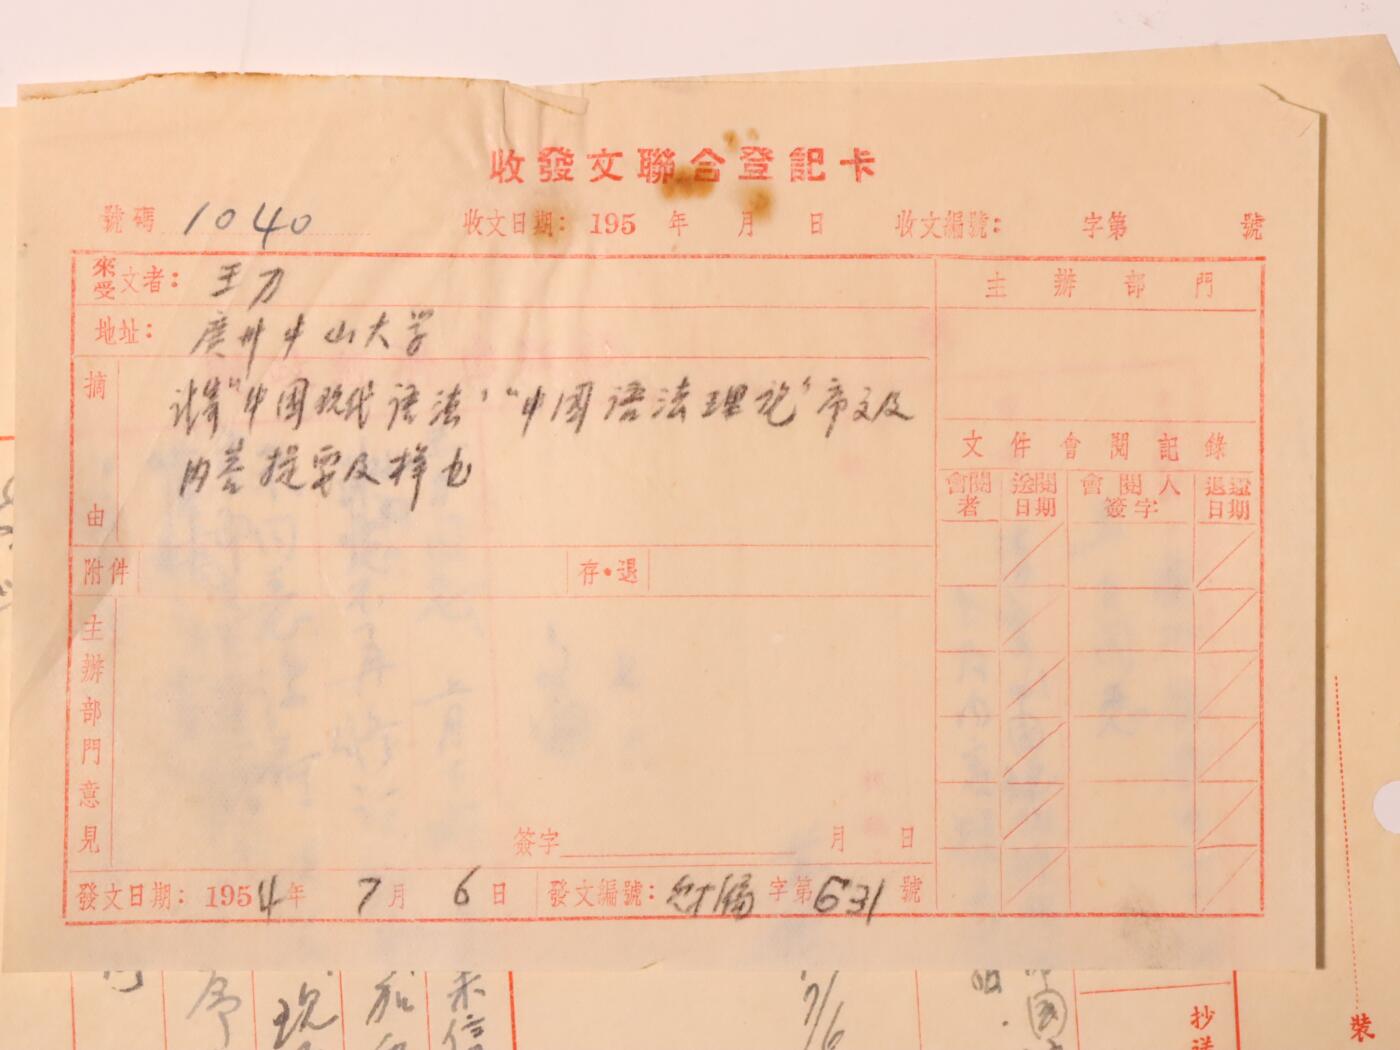 收發文聯合登記卡
號碼 1040 收文日期：195 年 月 日 收文編號： 字第 號
來受文者：王力
地址：廣州中山大学
主辦部門
摘由
"中国现代语法""中国语法理论"序文及
内容提要及样
文件會閱記錄
會閱者 送閱日期 會閱人簽字 退還日期
附件 存·退
主辦部門意見
簽字 月 日
發文日期：1954年 7月 6日 發文編號： 字第631號
序
现
和
来信
7/6
中国
抄送
裝